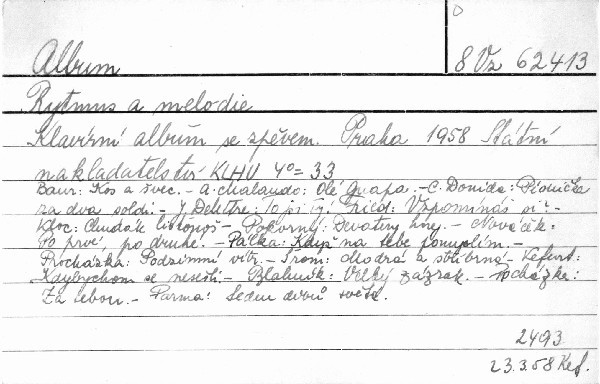 Album
8 Vz 62413
Rytmus a melodie
Klavírní album se zpěvem. Praha 1958 Státní
nakladatelství KLHU 4°= 33
Baur: Kos a švec. - A. Malando: Olé Guapa. - C. Donida: Písnička
za dva soldi. - J. Deletre: To jsi ty! Fried: Vzpomínáš si? -
Kloc: Chudák listonoš - Pokorný: Devatery hory. - Nováček:
Po prvé, po druhé. - Pálka: Když na tebe pomyslím. -
Procházka: Podzimní vítr. - Trom: Modrá a stříbrná. - Kefurt:
Kdybychom se nesešli. - Blahník: Velký zázrak. - Procházka:
Za tebou. - Parma: Sedm divů světa.
2493
23.3.58 Kef.